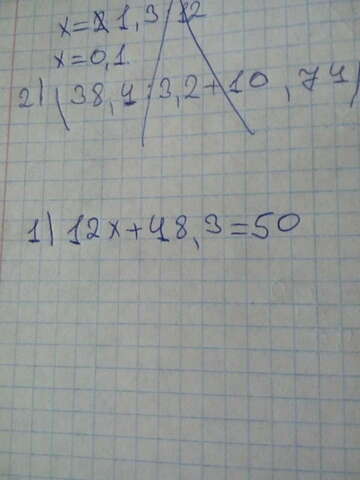 x=1,3/12
x=0,1
2) (38,4:3,2+10,74)
1) 12x+48,3=50